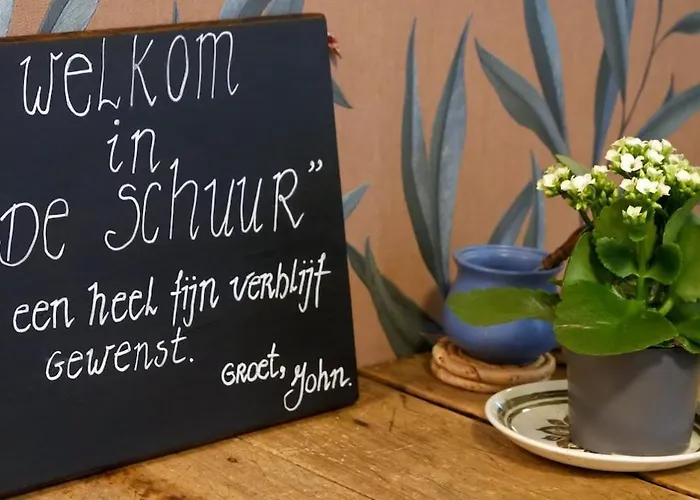 Welkom
in
De Schuur”
een heel fijn verblijf
gewenst.
Groet, John.